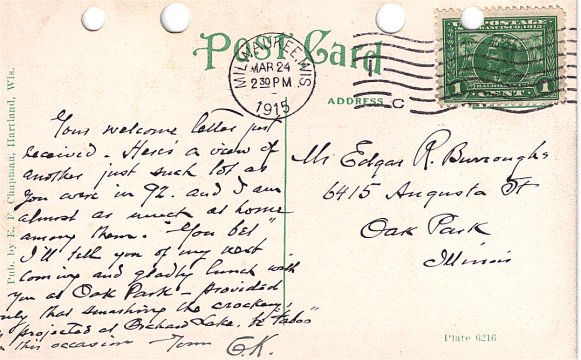 Post Card
MILWAUKEE, WIS.
MAR 24
2 30 PM
1915
U.S. POSTAGE
SAN FRANCISCO 1915
BALBOA
1 CENT 1
ADDRESS
C
Your welcome letter just
received. Here's a view of
another just such lot as
you were in 92. and I am
almost as much at home
among them. "You bet"
I'll tell you of my next
coming and gladly lunch with
you at Oak Park - provided
only that smashing the crockery,
as projected at Orchard Lake, be "taboo"
on this occasion Yours
C.K.
Mr Edgar R. Burroughs
6415 Augusta St
Oak Park
Illinois
Pub. by E. F. Chapman, Hartland, Wis.
Plate 6216